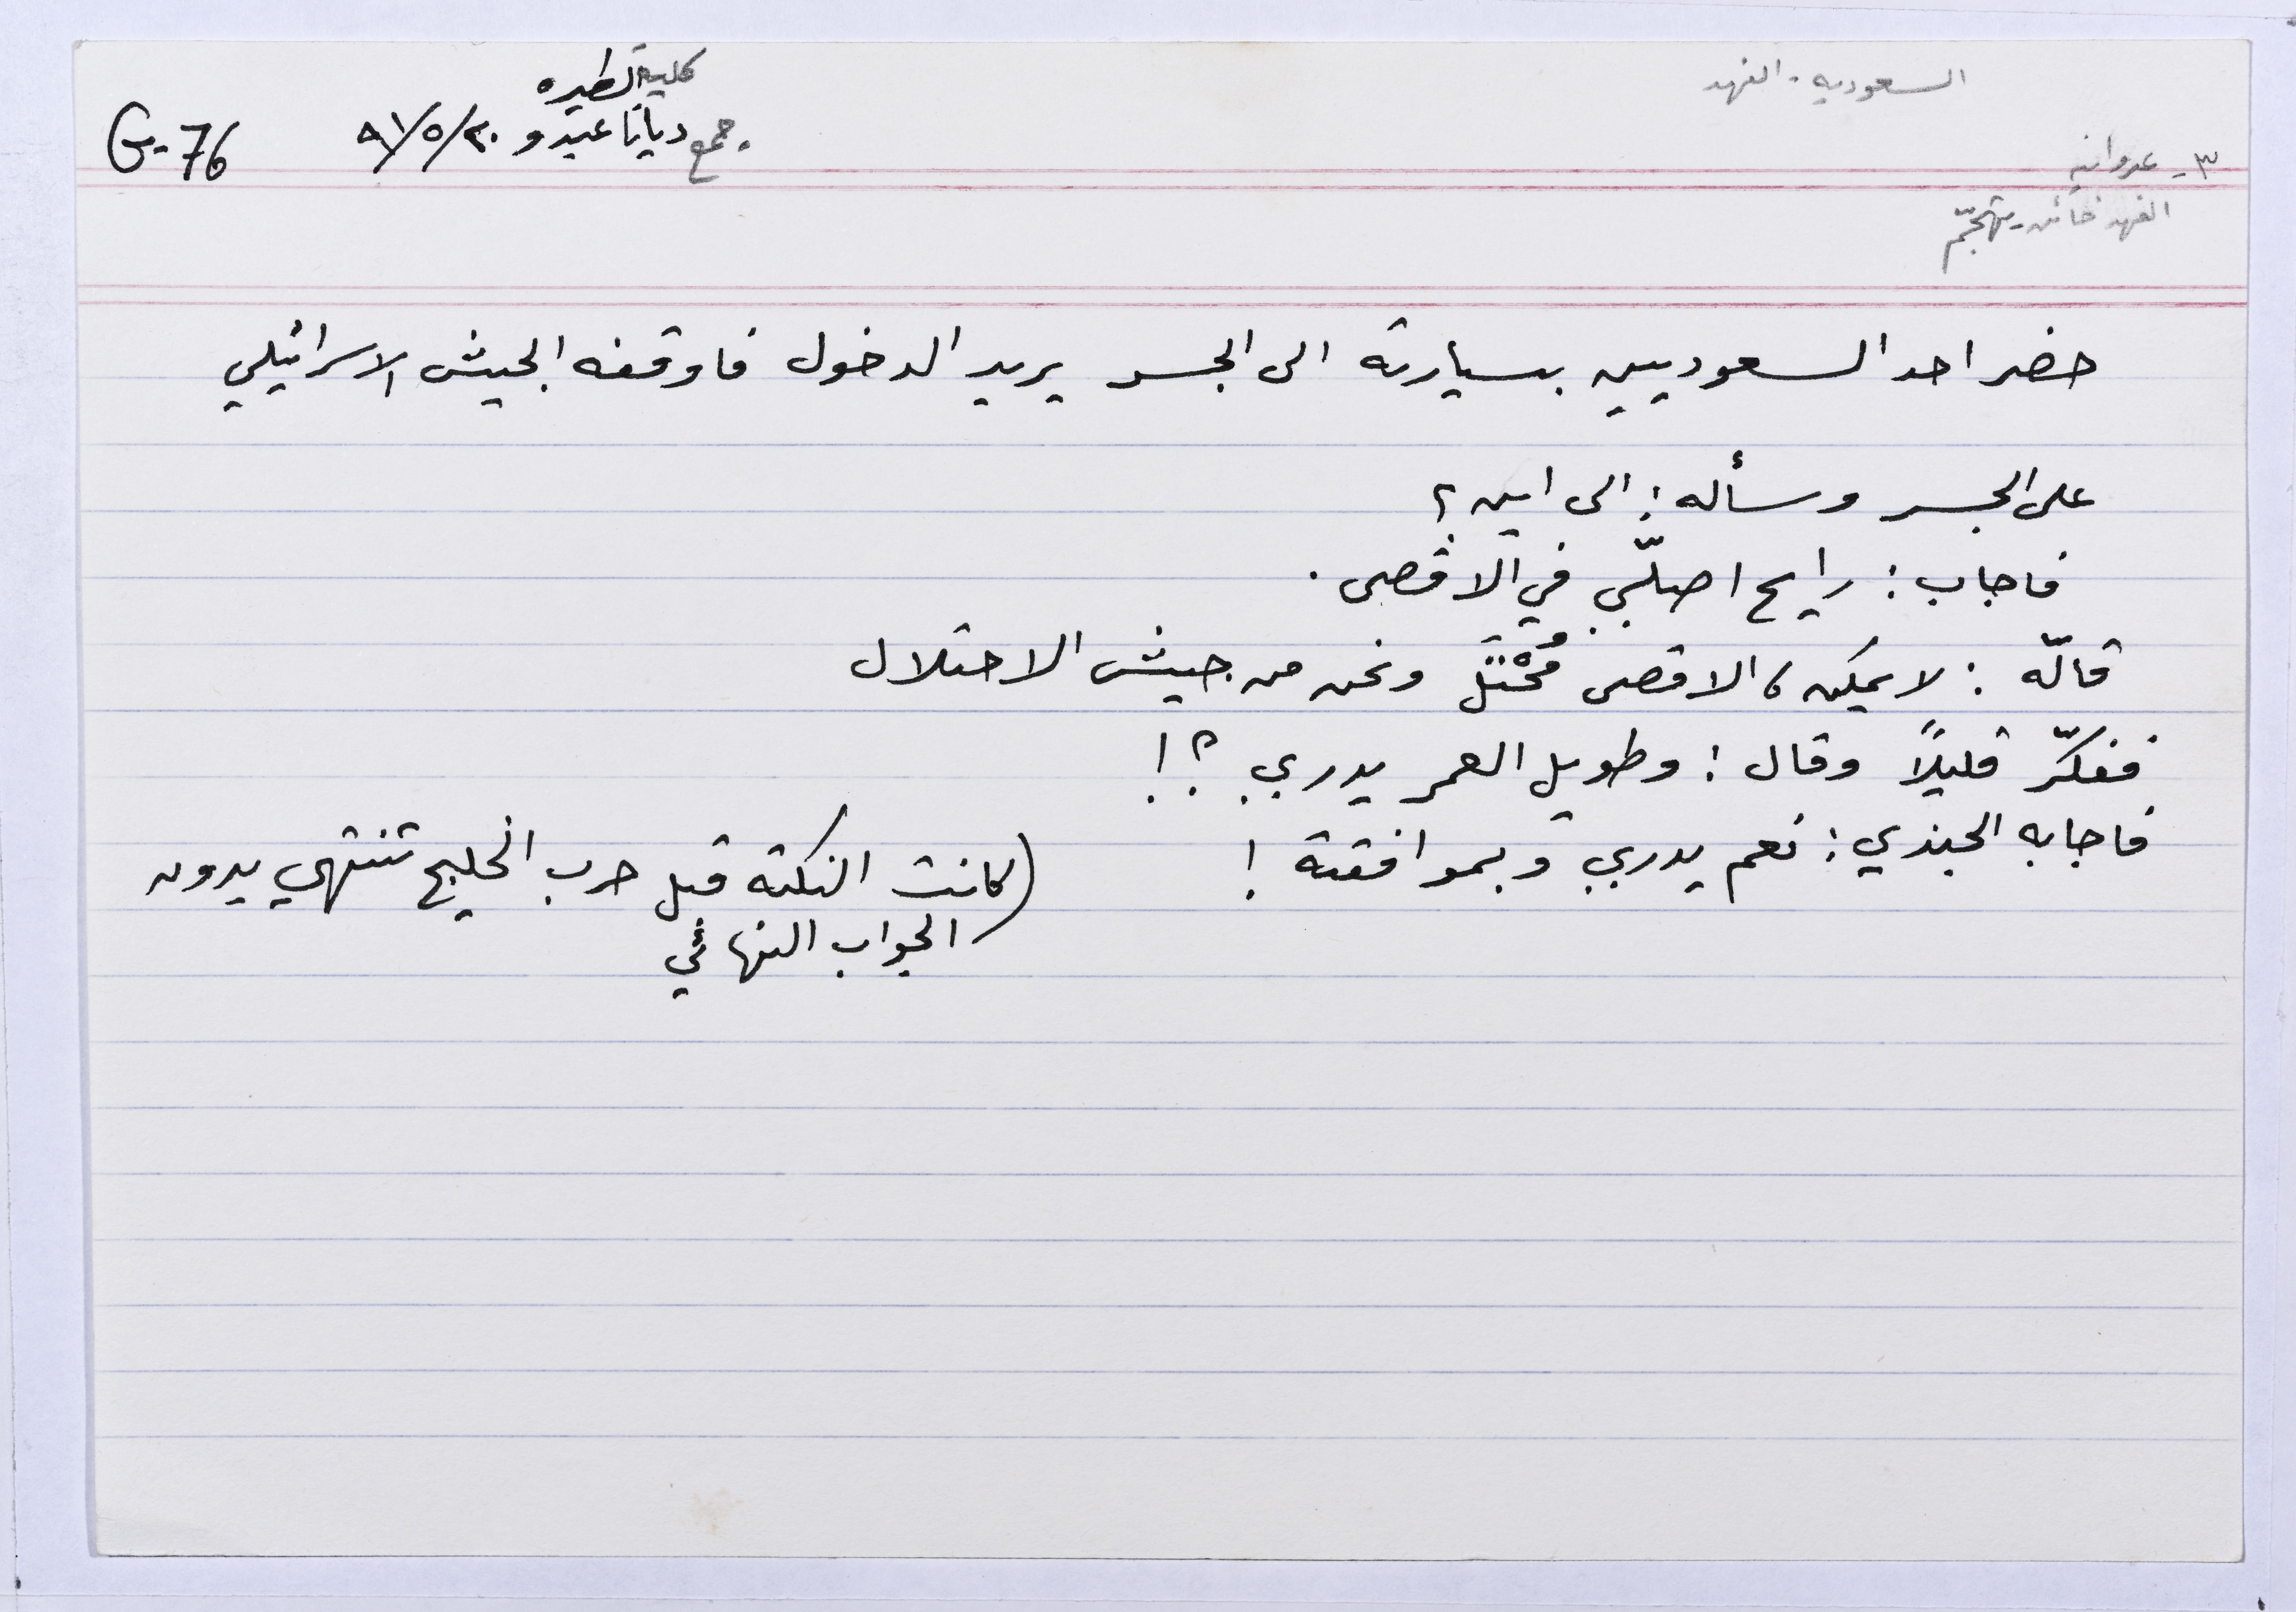 السعوديه - الفهد
كلية الطيره
جمع ديانا عبدو ٢٠/٥/٩١
G-76
٣- عدوانيه
الفهد خائن - يتهجّم
حضر احد السعوديين بسيارته الى الجسر يريد الدخول فاوقفه الجيش الاسرائيلي
على الجسر وسأله : الى اين ؟
فاجاب : رايح اصلّي في الاقصى .
قالّه : لا يمكن ، الاقصى مُحْتَل ونحن من جيش الاحتلال
ففكّر قليلاً وقال : وطويل العمر يدري ؟!
فاجابه الجندي : نعم يدري وبموافقته !
(كانت النكته قبل حرب الخليج تنتهي بدون
الجواب النهائي